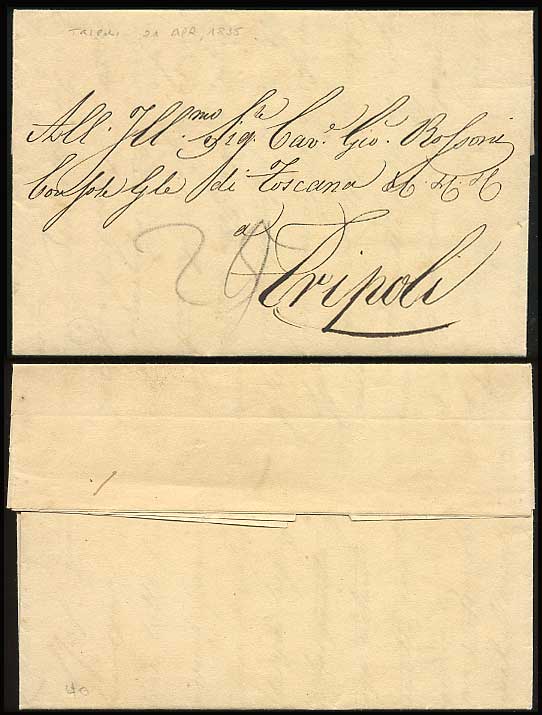 TRIPOLI 21 APR, 1835
All. Ill.mo Sig.re Cav.e Gio. Rossoni
Console Gle di Toscana &. &. &
a
Tripoli